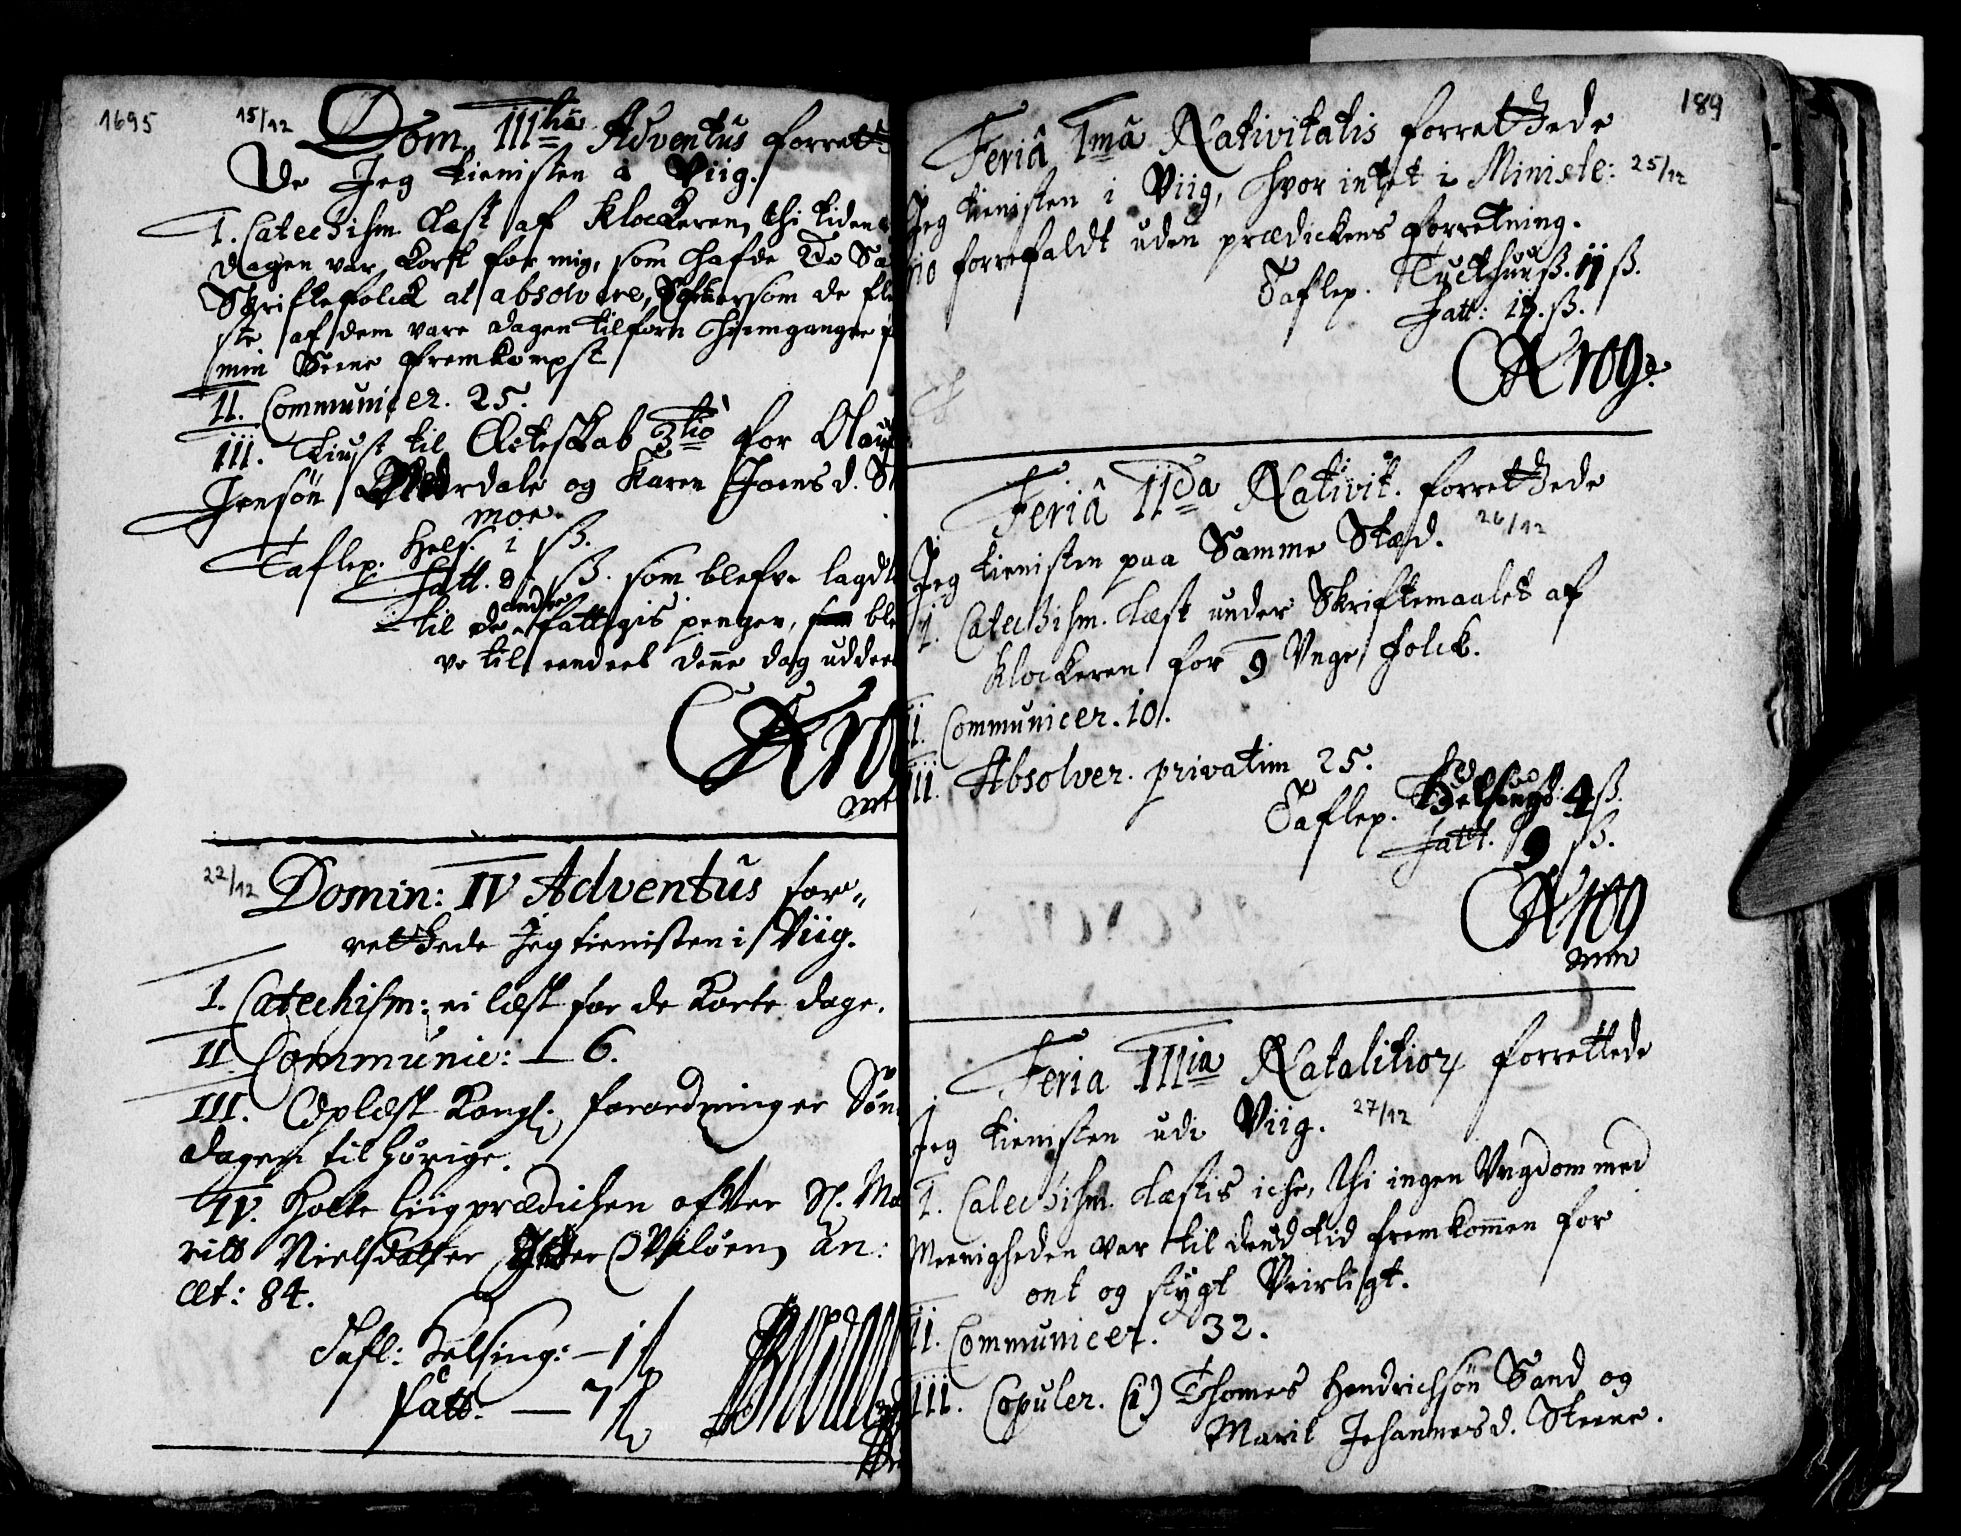 1695
15/12
Dom. III tia Adventus forret
de Jeg tienisten i Viig.
I. Catechism. Læst af Klockeren, thi tiden
dagen var kort for mig, som hafde
Skriftefolck at absolvere, som de fle
ste af dem vare dagen tilforn hiemgangne
min Seene fremkompst
II. Communicer. 25.
III. Liust til Ecteskab 3tiò for Oluf
Jensøn og Karen Joensd.
moe.
Taflep. Hels. i ß.
Fatt. 8 ß. som blefve lagdt
til de andre fattigis penger, ble
ve til eendeel denne dag uddeel
Krog
22/12
Domin: IV Adventus for,,
retthede Jeg tienisten i Viig.
I. Catechism: ei læst for de korte dage.
II Communic: — 6.
III. Oplæst Kongl. forordninger Søn
dagen tilhørige.
IV. Holte liigprædichen offver Sl. Ma
ritt Nielsdatter an:
æt: 84.
Tafl: Helsing: — 1 ß
fatt. — 7 ß
189
Feriâ Imâ Nativitatis forretthede
Jeg tienisten i Viig, hvor intet i Ministe: 25/12
rio forrefaldt uden prædickens forretning.
Taflep. Tuckthuus. 11 ß.
Fatt: ß.
Krog.
Feriâ IIda Nativit. forretthede
Jeg tienisten paa Samme Stæd. 26/12
I. Catechism. Læst under Skriftemaalet af
Klockeren for 9 Unge folck.
II. Communicer. 10.
III. Absolver. privatim 25.
Taflep. Helsingø: 4 ß.
Fatt. 9 ß.
Krog
mm
Feria IIIia Natalitior forrettede
Jeg tienisten udi Viig. 27/12
I. Catechism. Læstis iche, thi ingen Ungdom med
Meenigheden var til dend tid fremkommen for
ont og stygt Veirligt.
II. Communicer. 32.
III. Copuler. (1) Thomes Hendrichsøn Sand og
Marit Johannesd. Steene.